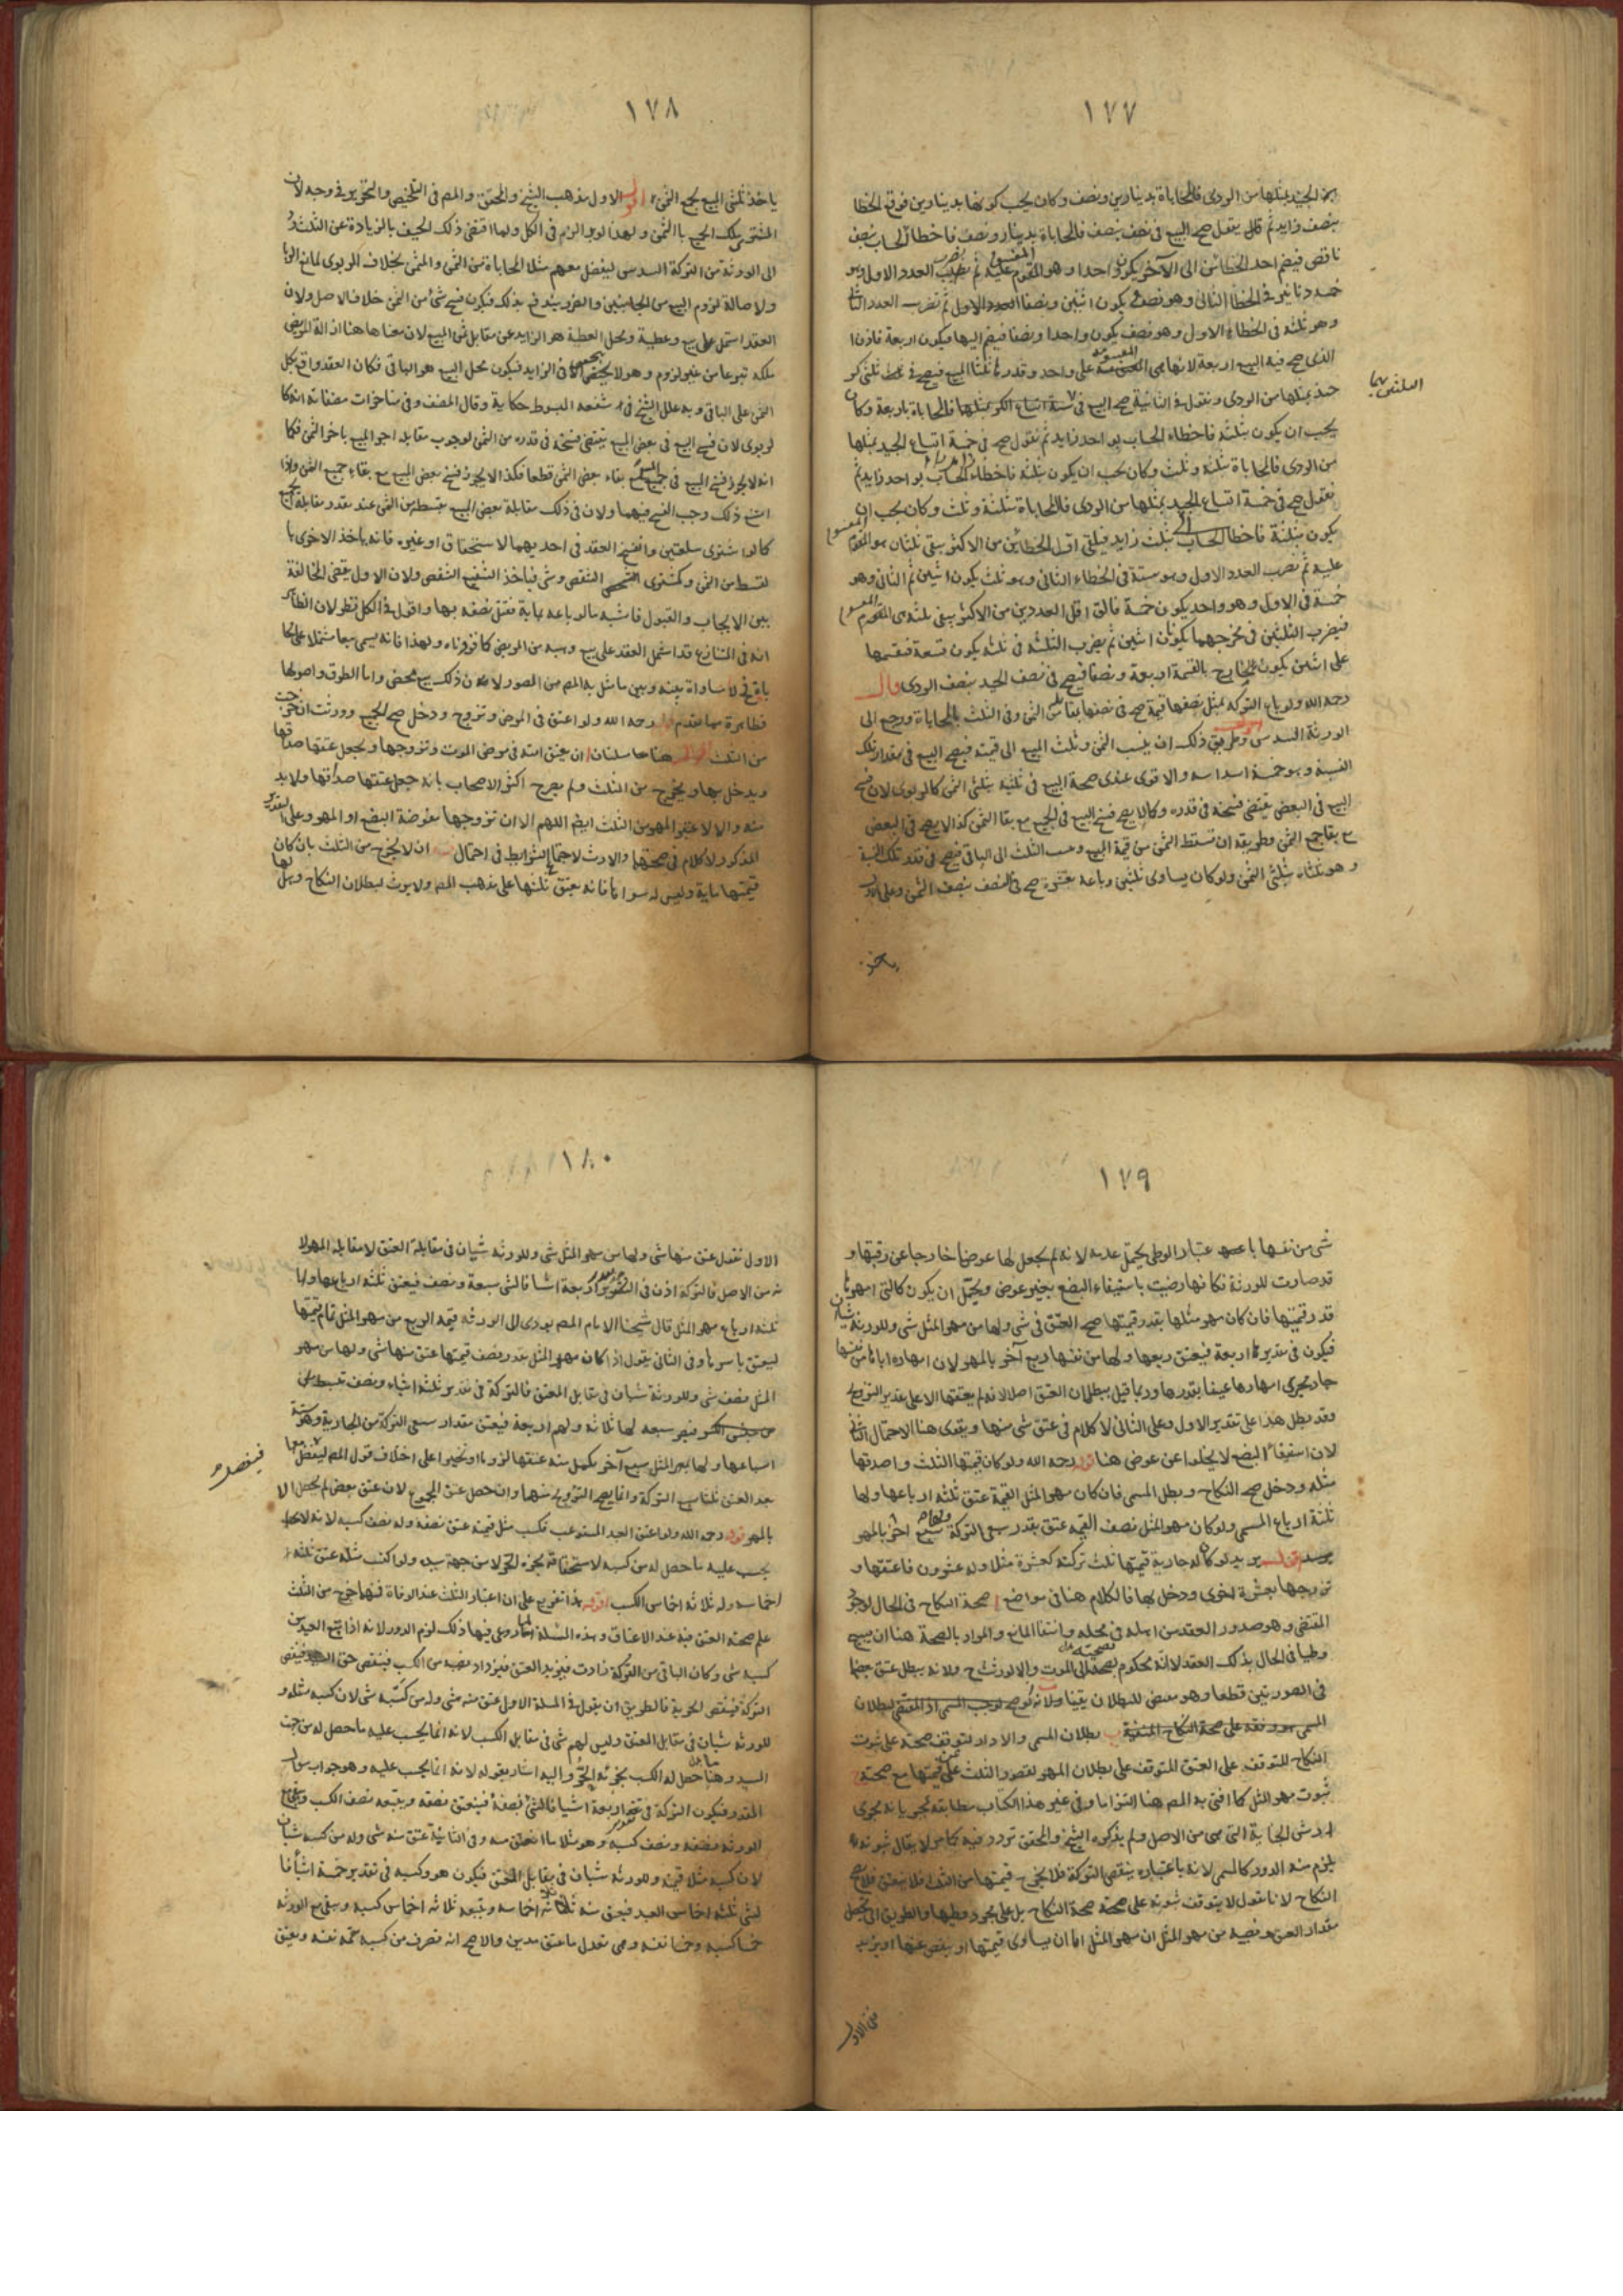 ١٧٧
من الجيد بمثلها من الردى فالمحاباة بدينارين ونصف وكان يجب كونها بدينارين فوقع الخطا
بنصف زايد ثم قال يقول صح البيع فى نصف بنصف فالمحاباة بدينار ونصف فاخطا الحساب بنصف
ناقص فيضم احد الخطائين الى الآخر يكون واحدا وهو المقسوم عليه ثم يضرب العدد الاول وهو
خمسة دنانير فى الخطأ الثانى وهو نصف يكون اثنين ونصفا ثم تضرب العدد الثانى
وهو ثلثة فى الخطاء الاول وهو نصف يكون واحدا ونصفا فيضم اليها فيكون اربعة فاذن
الذى صح فيه البيع اربعة لانها هى المقسومة على واحد وقدرها ثلثا المبيع فيصح فى ثلثى كر
جيد بمثلها من الردى ونقول فى الثانية صح البيع فى ستة اتساع الكر بمثلها فالمحاباة باربعة وكان
يجب ان يكون بثلثة فاخطاء الحساب بواحد زايد ثم نقول صح فى خمسة اتساع الجيد بمثلها
من الردى فالمحاباة بثلثة وثلث وكان يجب ان يكون بثلثة فاخطاء الحساب بواحد زايد ثم
نقول صح فى خمسة اتساع الجيد بمثلها من الردى فالمحاباة بثلثة وثلث وكان يجب ان
يكون بثلثة فاخطا الحساب بثلث زايد فيلقى اقل الخطائين من الاكثر يبقى ثلثان هو المقسوم
عليه ثم نضرب العدد الاول وهو ستة فى الخطاء الثانى وهو ثلث يكون اثنين ثم الثانى وهو
خمسة فى الاول وهو واحد يكون خمسة فالق اقل العددين من الاكثر يبقى ثلثة هى المقسوم
فيضرب الثلثين فى مخرجهما يكونان اثنين ثم يضرب الثلثة فى ثلثة يكون تسعة فنقسمها
على اثنين يكون الخارج بالقسمة اربعة ونصفا فيصح فى نصف الجيد بنصف الردى قال
رحمه الله ولو باع التركة بمثل نصفها قيمة صح فى نصفها بقايس الثمن وفى الثلث بالمحاباة ورجع الى
الورثة السدس وطريق ذلك ان ينسب الثمن وثلث المبيع الى قيمته فيصح البيع فى مقدار تلك
النسبة وهو خمسة اسداسه والاقوى عندى صحة البيع فى ثلثيه بثلثى الثمن كالربوى لان فسخ
البيع فى البعض يقتضى فسخه فى قدره وكما لا يصح فسخ البيع فى الجميع مع بقا الثمن كذا لا يصح فى البعض
مع بقا جميع الثمن وطريقه ان تسقط الثمن من قيمة المبيع وينسب الثلث الى الباقى فيصح فى قدر تلك النسبة
وهو ثلثاه بثلثى الثمن ولو كان يساوى ثلثين وباعه بعشرة صح فى النصف بنصف الثمن وعلى الاول
ياخذ
١٧٨
ياخذ ثلثى المبيع بجميع الثمن اقول الاول مذهب الشيخ والمحقق والمص فى التلخيص والتحرير فى وجه لان
المشترى ملك الجميع بالثمن ولهذا لو برا لزم فى الكل ولما اقتضى ذلك الحيف بالزيادة عن الثلث رد
الى الورثة من التركة السدس ليفضل معهم مثلا المحاباة من الثمن والمثمن بخلاف الربوى لمانع الربا
ولاصالة لزوم البيع من الجانبين والضرر يندفع بذلك فيكون فسخ شئ من الثمن خلاف الاصل ولان
العقد اشتمل على بيع وعطية ومحل العطية هو الزايد عن مقابل ثمن المبيع لان معناها هنا ازالة المريض
ملكه تبرعا من غير لزوم وهو لا يتحقق الا فى الزايد فيكون محل البيع هو الباقى فكان العقد واقع بكل
الثمن على الباقى وبه علل الشيخ فى شفعة المبسوط حكاية وقال المصنف وفى متاخرات مصنفاته انه كا
لربوى لان فسخ البيع فى بعض المبيع يقتضى فسخه فى قدره من الثمن لوجوب مقابلة اجزا المبيع باجزا الثمن فكما
انه لا يجوز فسخ البيع فى جميع المبيع مع بقاء بعض الثمن قطعا فكذا لا يجوز فسخ بعض المبيع مع بقاء جميع الثمن واذا
امتنع ذلك وجب الفسخ فيهما ولان فى ذلك مقابلة بعض المبيع بقسطه من الثمن عند تعذر مقابلة الجميع
كما لو اشترى سلعتين وانفسخ العقد فى احديهما لاستحقاق او غيره فانه ياخذ الاخرى با
لقسط من الثمن وكمشترى الشقص وشئ فياخذ الشفيع الشقص ولان الاول يقتضى المخالفة
بين الايجاب والقبول فاشبه ما لو باعه بماية فقبل نصفه بها واقول فى الكل نظر لان الظاهر
انه فى المتنازع قد اشتمل العقد على بيع وهبة من المريض كما قررناه ولهذا فانه يسمى بيعا مشتملا على محا
باة فلا مساواة بينه وبين ما مثل به المص من الصور لان ذلك بيع محض واما الطرق واصولها
فظاهرة مما تقدم قال رحمه الله ولو اعتق فى المرض وتزوج ودخل صح الجميع وورثت ان خرجت
من الثلث اقول هنا مسئلتان ا ان يعتق امته فى مرض الموت وتزوجها ويجعل عتقها صداقها
ويدخل بها ويخرج من الثلث ولم يصرح اكثر الاصحاب بانه جعل عتقها صداقها ولا بد
منه والا لاعتبر المهر من الثلث ايضا اللهم الا ان تزوجها مفوضة البضع او المهر وعلى التقدير
المذكور لا كلام فى صحتها والارث لاجتماع الشرايط فى احتمال ب ان لا يخرج من الثلث بان كان
قيمتها ماية وليس له سواها فانه يعتق ثلثها على مذهب المص ولا يورث لبطلان النكاح وهل لها
١٧٩
شئ من نفسها باعتبار الوطى يحتمل عدمه لانه لم يجعل لها عوضا خارجا عن رقبتها و
قد صارت للورثة فكانها رضيت باستيفاء البضع بغير عوض ويحتمل ان يكون كالتى امهرها
قدر قيمتها فان كان مهر مثلها بقدر قيمتها صح العتق فى شئ ولها من مهر المثل شئ وللورثة شيئان
فيكون فى تقدير اربعة فيعتق ربعها ولها من نفسها ربع آخر بالمهر لان امهاره اياها من نفسها
جار مجرى امهارها عينا بقدرها وربما قيل ببطلان العتق اصلا لانه لم يعتقها الا على تقدير التزويج
وقد بطل هذا على تقدير الاول وعلى الثانى لا كلام فى عتق شئ منها ويقوى هنا الاحتمال الثانى
لان استيفا البضع لا يخلوا عن عوض هنا قال رحمه الله ولو كان قيمتها الثلث واصدقها
مثله ودخل صح النكاح وبطل المسمى فان كان مهر المثل القيمة عتق ثلثة ارباعها ولها
ثلثة ارباع المسمى ولو كان مهر المثل نصف القيمة عتق بقدر سبعى التركة ولها سبع آخر بالمهر
اقول يريد لو كان له جارية قيمتها ثلث تركته كعشرة مثلا وله عشرون فاعتقها و
تزوجها بعشرة اخرى ودخل بها فالكلام هنا فى مواضع ا صحة النكاح فى الحال لوجود
المقتضى وهو صدور العقد من اهله فى محله وانتفا المانع والمراد بالصحة هنا ان يبيح
وطيا فى الحال بذلك العقد لا انه محكوم بصحته الى الموت والا لورثت ولانه يبطل عتق بعضها
فى الصورتين قطعا وهو مفض للبطلان يقينا
ب بطلان المسمى والا دار لتوقف صحته على ثبوت
النكاح المتوقف على العتق المتوقف على بطلان المهر لقصور الثلث عن قيمتها مع صحته
ثبوت مهر المثل كما افتى به المص هنا التزاما وفى غير هذا الكتاب مطابقة لجريانه مجرى
ارش الجناية التى هى من الاصل ولم يذكره الشيخ والمحقق تردد فيه كما مر لا يقال ثبوته
يلزم منه الدور كالمسمى لانه باعتباره ينقص التركة فلا يخرج قيمتها من الثلث فلا يعتق فلا يصح
النكاح لانا نقول لا يتوقف ثبوته على صحة النكاح بل على مجرد وطيها والطريق الى تحصيل
مقدار العتق ونصيبه من مهر المثل ان مهر المثل اما ان يساوى قيمتها او ينقص عنها او يزيد
ففى الاول
١٨٠
الاول نقول عتق منها شئ ولها من مهر المثل شئ وللورثة شيئان فى مقابلة العتق لا مقابلة المهر لا
نه من الاصل فالتركة اذن فى التقدير اربعة اشيا فالشئ سبعة ونصف فيعتق ثلثة ارباعها ولها
ثلثة ارباع مهر المثل قال شيخنا الامام المص يؤدى الى الورثة قيمة الربع من مهر المثل تمام قيمتها
ليعتق باسرها وفى الثانى يقول اذا كان مهر المثل بقدر نصف قيمتها عتق منها شئ ولها من مهر
المثل نصف شئ وللورثة شيئان فى مقابل العتق فالتركة فى تقدير ثلثة اشياء ونصف تبسط على
فيصر سبعة لها ثلاثة ولهم اربعة فيعتق مقدار سبعى التركة من الجارية وهو ستة
اسباعها ولها بمهر المثل سبع آخر يكمل منه عتقها لزوما او تخيرا على اختلاف قول المص ليفضل معها
بعد العتق ثلثا التركة وانما يصح التزويج منهما وان حصل عتق الجميع لان عتق بعض لم يحصل الا
بالمهر قال رحمه الله ولو اعتق العبد المستوعب فكسب مثل قيمته عتق نصفه وله نصف كسبه لانه لا
يحسب عليه ما حصل له من كسبه لاستحقاقه بجزئه الحر لا من جهة سيده ولو اكتسب مثليه عتق ثلثة
اخماسه وله ثلاثة اخماس الكسب اقول هذا تفريع على ان اعتبار الثلث عند الوفاة فمهما خرج من الثلث
علم صحة العتق فيه عند الاعتاق وهذه المسئلة انما روعى فيها ذلك لزوم الدور لانه اذا تبع العبد من
كسبه شئ وكان الباقى من التركة زادت فيزيد العتق فيزداد نصيبه من الكسب فينقص حق السيد فينقص
التركة فينقص الحرية فالطريق ان يقول فى المسئلة الاولى عتق منه شئ وله من كسبه شئ لان كسبه مثله و
للورثة شيئان فى مقابل العتق وليس لهم شئ فى مقابل الكسب لانه انما يحسب عليه ما حصل له من جهة
السيد وهنا ما حصل له الكسب بجزئه الحر واليه اشار بقوله لانه انما يحسب عليه وهو جواب سوال
المقدر فيكون التركة فى تقدير اربعة اشيا فالشئ نصفه فيعتق نصفه ويتبعه نصف الكسب ويبقى مع
الورثة نصفه ونصف كسبه وهو مثلا ما انعتق منه وفى الثانية عتق منه شئ وله من كسبه شيئان
لان كسبه مثلا قيمته وللورثة شيئان فى مقابل العتق فيكون هو وكسبه فى تقدير خمسة اشيا فا
لشئ ثلثة اخماس العبد فيعتق منه ثلاثة اخماسه ويتبعه ثلاثة اخماس كسبه ويبقى مع الورثة
خمسا كسبه وخمسا نفسه وهى تعدل ما عتق مرتين والاصح انه يصرف من كسبه تمة نفسه ويعتق